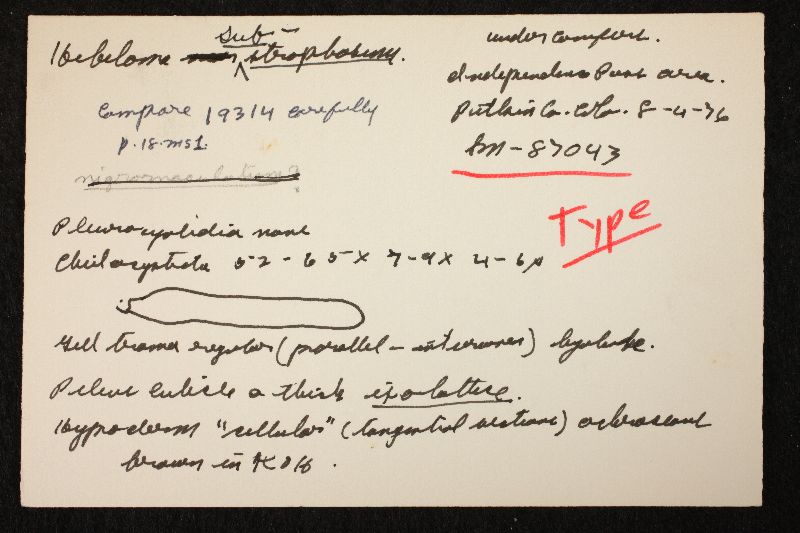 Hebeloma sub-strophosum.
under conifers.
Independence Pass area.
Compare 19314 carefully
Pitkin Co. Colo. 8-4-76
p. 18. ms1.
Sm-87043
nigromaculatum?
Type
Pleurocystidia none
Cheilocystidia 52-65 x 7-9 x 4-6 µ
Gill trama regular (parallel - interwoven) hyaline.
Pileus cuticle a thick ixolattice.
Hypoderm "cellular" (tangential sections) ochraceous
brown in KOH.